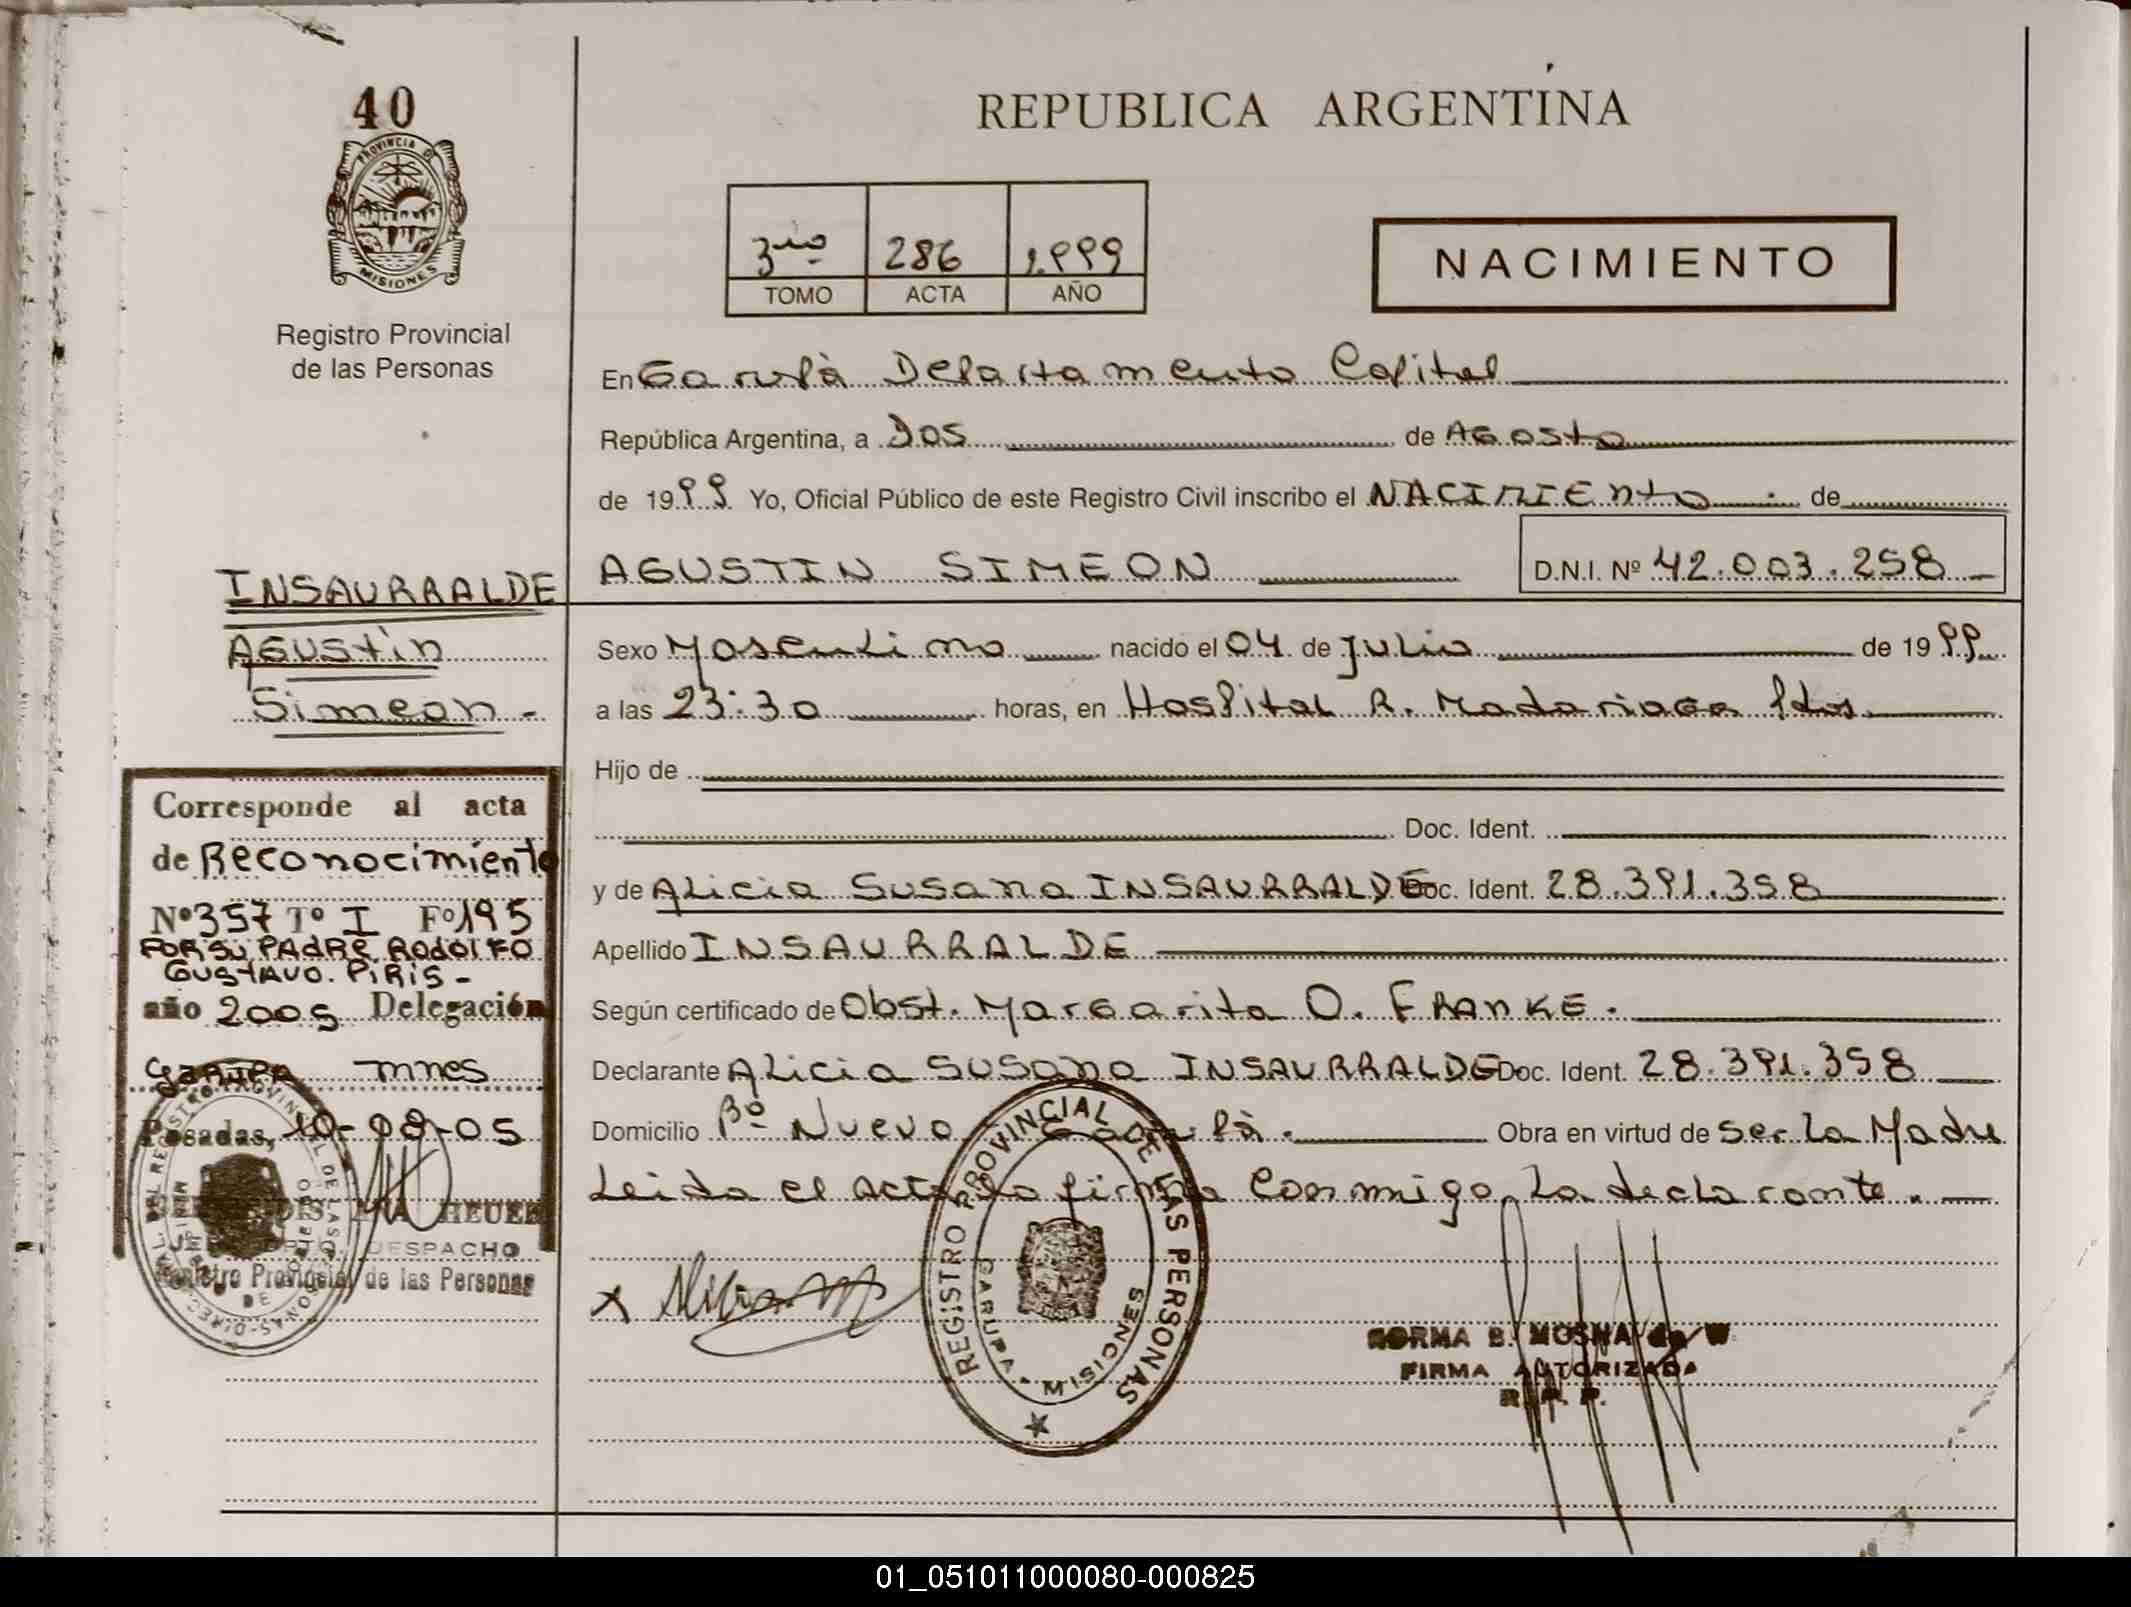 40
PROVINCIA D
MISIONES
Registro Provincial
de las Personas
REPUBLICA ARGENTINA
3rio 286 1.999
TOMO ACTA AÑO
NACIMIENTO
En Garupà Departamento Capital
República Argentina, a Dos de Agosto
de 1999 Yo, Oficial Público de este Registro Civil inscribo el NACIMIENto de
AGUSTIN SIMEON D.N.I. Nº 42.003.258
INSAURRALDE
Agustìn
Simeon -
Sexo Masculino nacido el 04 de Julio de 1999
a las 23:30 horas, en Hospital R. Madariaga Pdas.
Hijo de
Doc. Ident.
y de Alicia Susana INSAURRALDE Doc. Ident. 28.391.358
Apellido INSAURRALDE
Según certificado de Obst. Margarita O. FRANKE.
Declarante Alicia SUSANA INSAURRALDE Doc. Ident. 28.391.358
Domicilio Bº Nuevo Garupà. Obra en virtud de Ser La Madre
Leida el acta la firma Conmigo, La declarante.
Corresponde al acta
de Reconocimiento
Nº 357 Tº I Fº 195
POR SU PADRE RODOLFO
GUSTAVO. PIRIS -
año 2005 Delegación
GARUPA mnes
Posadas, 10-08-05
DESPACHO
Registro Provincial de las Personas
REGISTRO PROVINCIAL DE LAS PERSONAS
GARUPA - MISIONES
NORMA B. MOSNA de W
FIRMA AUTORIZADA
R. P. P.
01_051011000080-000825